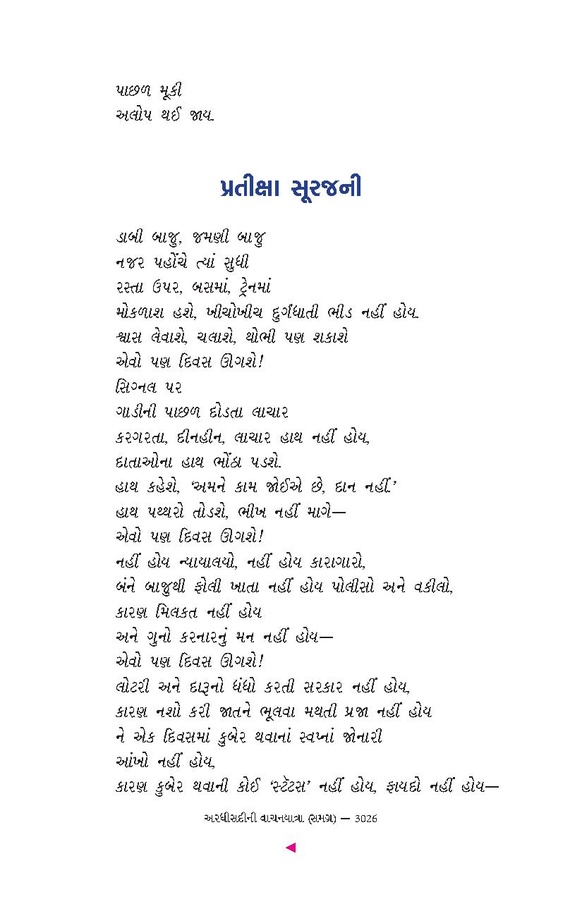 પાછળ મૂકી
અલોપ થઈ જાય.
પ્રતીક્ષા સૂરજની
ડાબી બાજુ, જમણી બાજુ
નજર પહોંચે ત્યાં સુધી
રસ્તા ઉપર, બસમાં, ટ્રેનમાં
મોકળાશ હશે, ખીચોખીચ દુર્ગંધાતી ભીડ નહીં હોય.
શ્વાસ લેવાશે, ચલાશે, થોભી પણ શકાશે
એવો પણ દિવસ ઊગશે!
સિગ્નલ પર
ગાડીની પાછળ દોડતા લાચાર
કરગરતા, દીનહીન, લાચાર હાથ નહીં હોય,
દાતાઓના હાથ ભોંઠા પડશે.
હાથ કહેશે, ‘અમને કામ જોઈએ છે, દાન નહીં.’
હાથ પથ્થરો તોડશે, ભીખ નહીં માગે—
એવો પણ દિવસ ઊગશે!
નહીં હોય ન્યાયાલયો, નહીં હોય કારાગારો,
બંને બાજુથી ફોલી ખાતા નહીં હોય પોલીસો અને વકીલો,
કારણ મિલકત નહીં હોય
અને ગુનો કરનારનું મન નહીં હોય—
એવો પણ દિવસ ઊગશે!
લોટરી અને દારૂનો ધંધો કરતી સરકાર નહીં હોય,
કારણ નશો કરી જાતને ભૂલવા મથતી પ્રજા નહીં હોય
ને એક દિવસમાં કુબેર થવાનાં સ્વપ્નાં જોનારી
આંખો નહીં હોય,
કારણ કુબેર થવાની કોઈ ‘સ્ટૅટસ’ નહીં હોય, ફાયદો નહીં હોય—
અરધીસદીની વાચનયાત્રા (સમગ્ર) — 3026